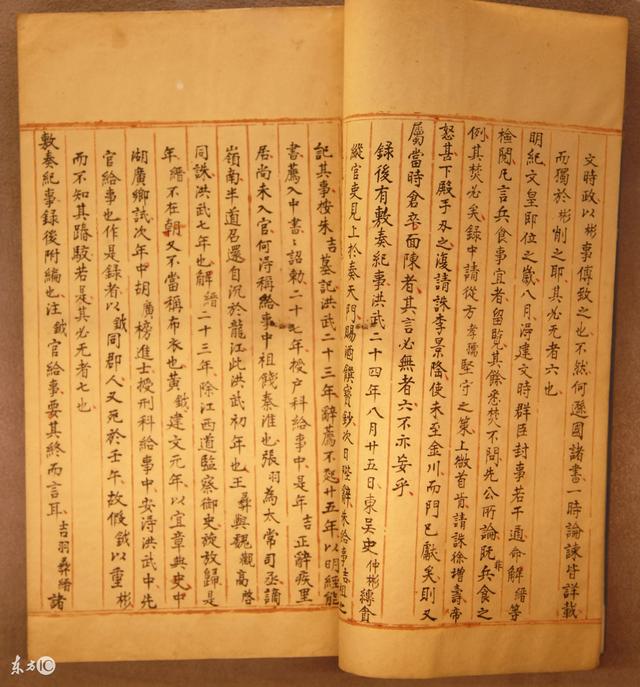 文時政以彬事傅致之也不然何遜國諸書一時論諫皆詳載
而獨於彬削之耶其必无者六也
明紀文皇即位之歲八月淂建文時群臣封事若干通命解縉等
檢閱凡言兵食事宜者留覧其餘悉焚不問先公所論既非兵食之
例其焚必矣録中請從方孝孺堅守之策上微首肯請誅徐增壽帝
怒甚下殿手刃之復請誅李景隆使未至金川而門已獻矣則又
屬當時倉卒面陳者其言必無者六不亦妄乎
録後有敷奏紀事洪武二十四年八月廿五日東吳史仲彬縛貪
縱官吏見上於奏天門賜酒饌寳鈔次日陛辭朱給事吉祖之
記其事按朱吉墓記洪武二十三年辭薦不起廿五年以明經能
書薦入中書〻詔勅二十七年授户科給事中是年吉正辭疾里
居尚未入官何淂稱給事中祖餞秦淮也張羽為太常司丞謫
嶺南半道召還自沉於龍江此洪武初年也王彞與魏觀高啓
同誅洪武七年也解縉二十三年除江西道監察御史旋放歸是
年縉不在朝又不當稱布衣也黃鉞建文元年以宜章典史中
湖廣鄉試次年中胡廣榜進士授刑科給事中安淂洪武中先
官給事也作是錄者以鉞同郡人又死於壬午故假鉞以重彬
而不知其踳駁若是其必无者七也
敷奏紀事録後附編也注鉞官給事要其終而言耳吉羽彞縉諸
东方IC